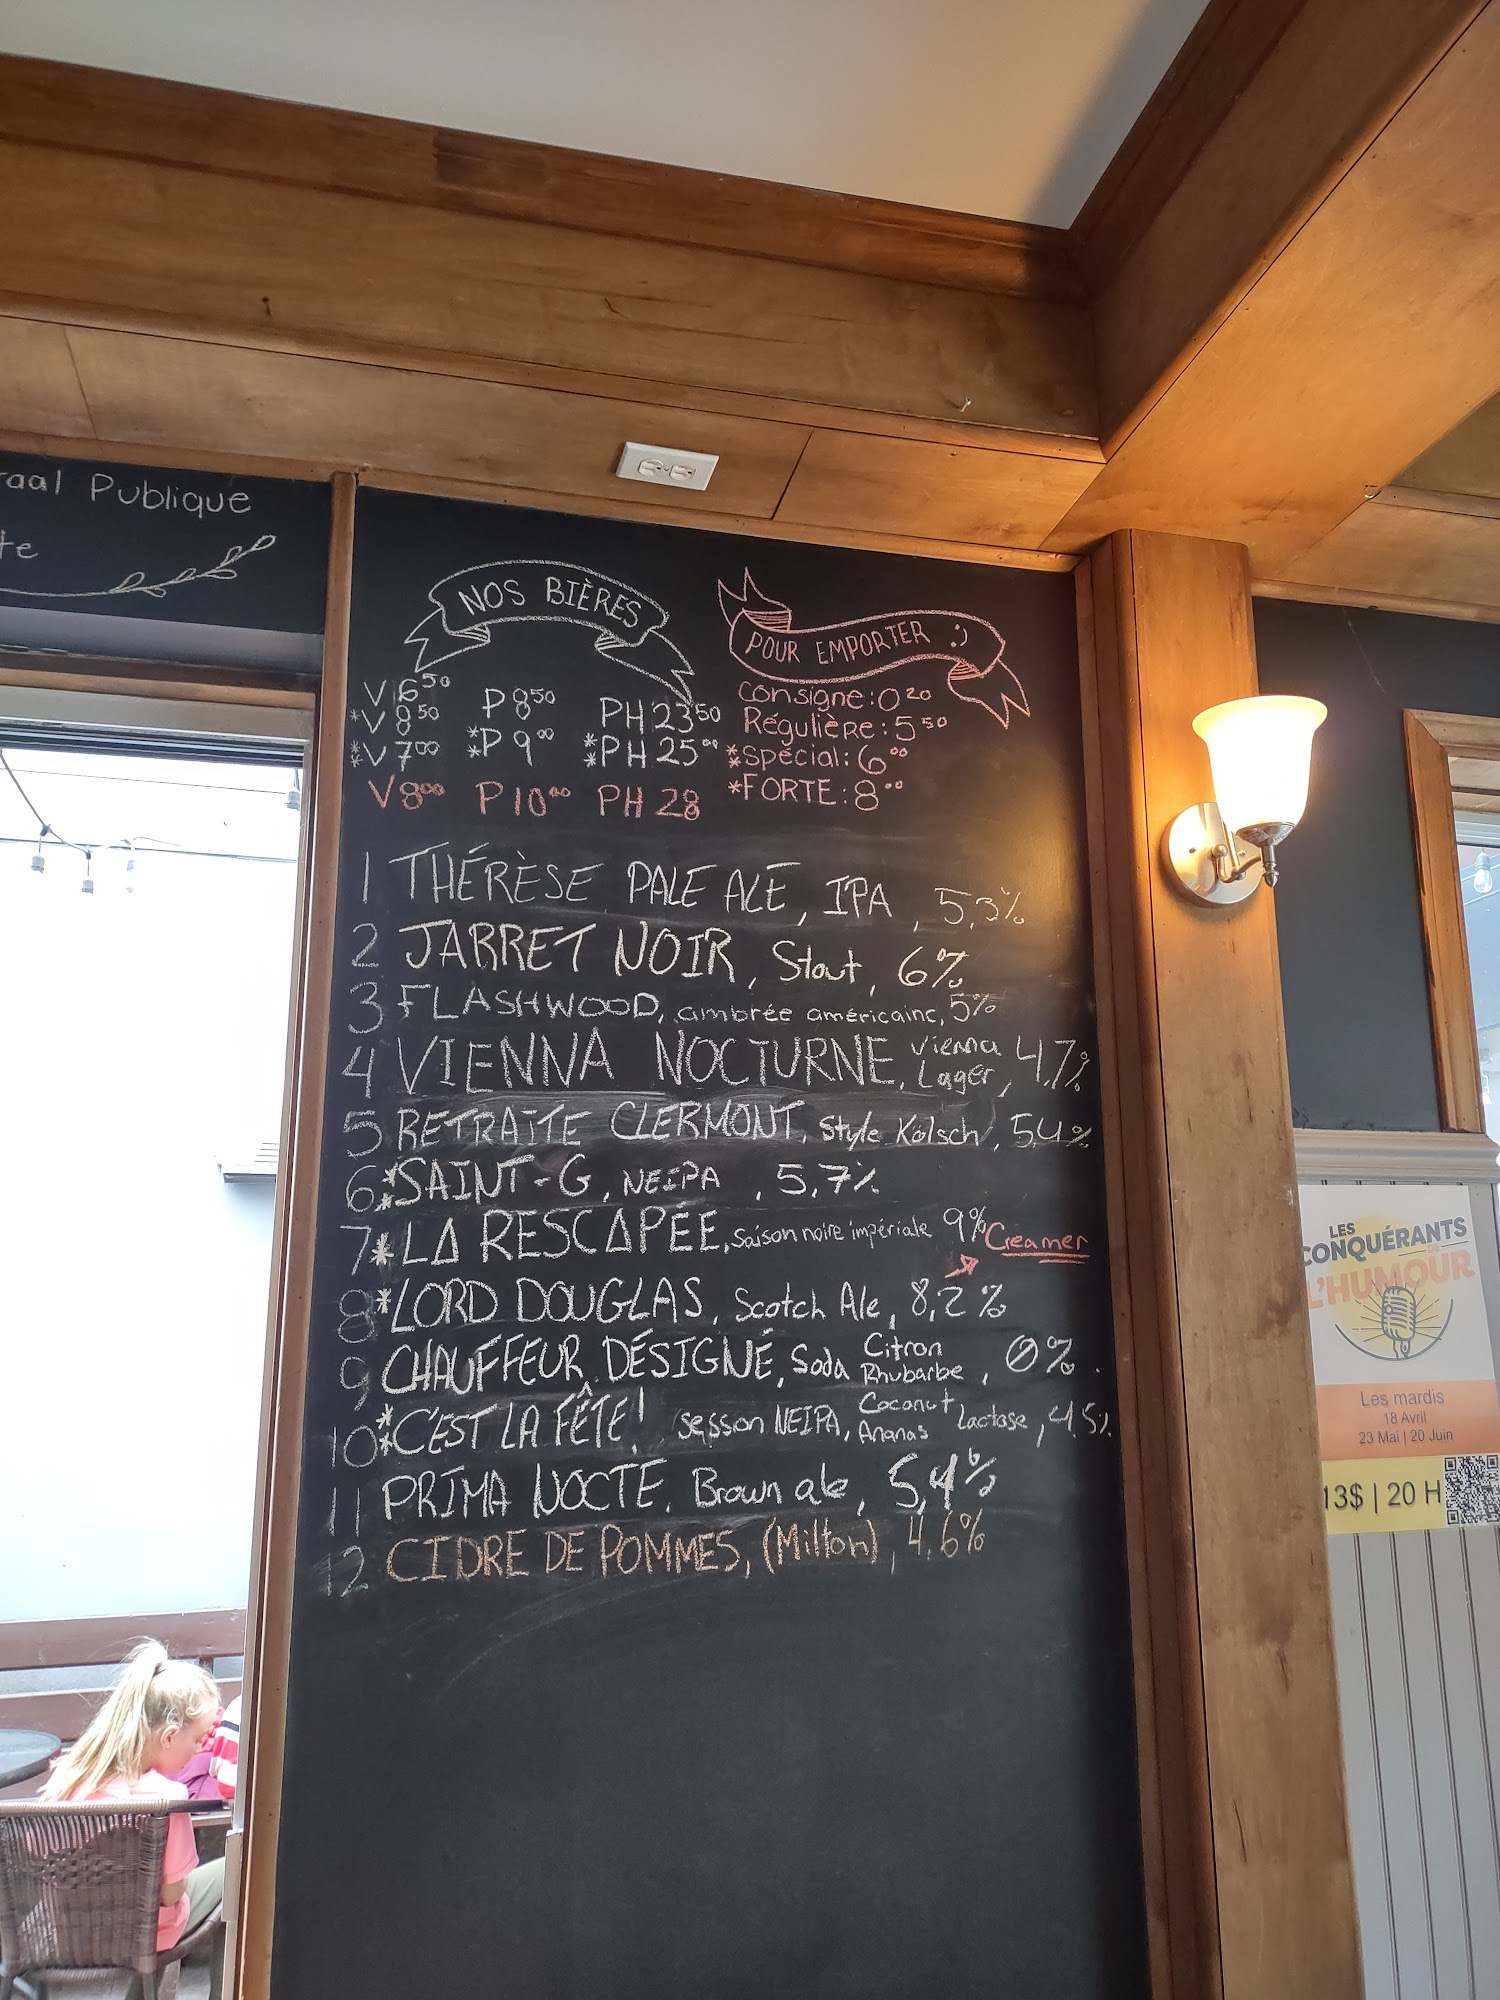 raal Publique
te
NOS BIÈRES
V 6 50 P 8 50 PH 23 50
*V 8 50
**V 7 00 **P 9 00 **PH 25 00
V 8 00 P 10 00 PH 28
POUR EMPORTER :)
Consigne: 0 20
Régulière: 5 50
**Spécial: 6 00
*FORTE: 8 00
1 THÉRÈSE PALE ALE, IPA, 5,3%
2 JARRET NOIR, Stout, 6%
3 FLASHWOOD, ambrée américaine, 5%
4 VIENNA NOCTURNE, Vienna Lager, 4,7%
5 RETRAITE CLERMONT, Style Kölsch, 5,4%
6 **SAINT-G, NEIPA, 5,7%
7 *LA RESCAPÉE, Saison noire impériale 9% Creamer
8 *LORD DOUGLAS, Scotch Ale, 8,2%
9 CHAUFFEUR DÉSIGNÉ, Soda Citron Rhubarbe, 0%.
10 **C'EST LA FÊTE! session NEIPA, Coconut Ananas Lactose, 4,5%
11 PRIMA NOCTE, Brown ale, 5,4%
12 CIDRE DE POMMES, (Milton), 4,6%
LES
CONQUÉRANTS
DE
L'HUMOUR
Les mardis
18 Avril
23 Mai | 20 Juin
13$ | 20 H